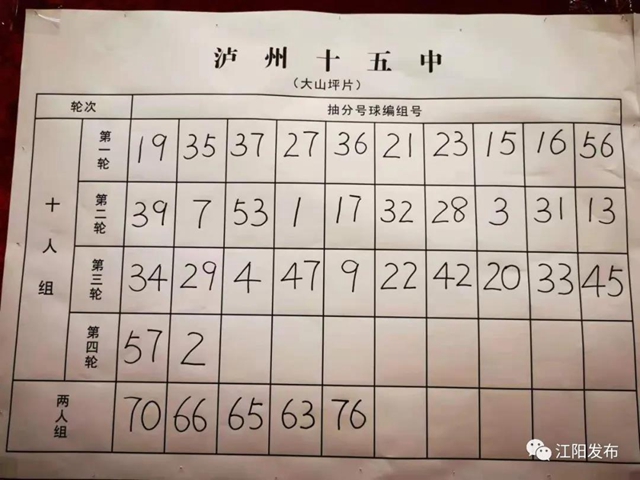 泸州十五中
（大山坪片）
轮次 抽分号球编组号
十人组
第一轮 19 35 37 27 36 21 23 15 16 56
第二轮 39 7 53 1 17 32 28 3 31 13
第三轮 34 29 4 47 9 22 42 20 33 45
第四轮 57 2
两人组 70 66 65 63 76
江阳发布